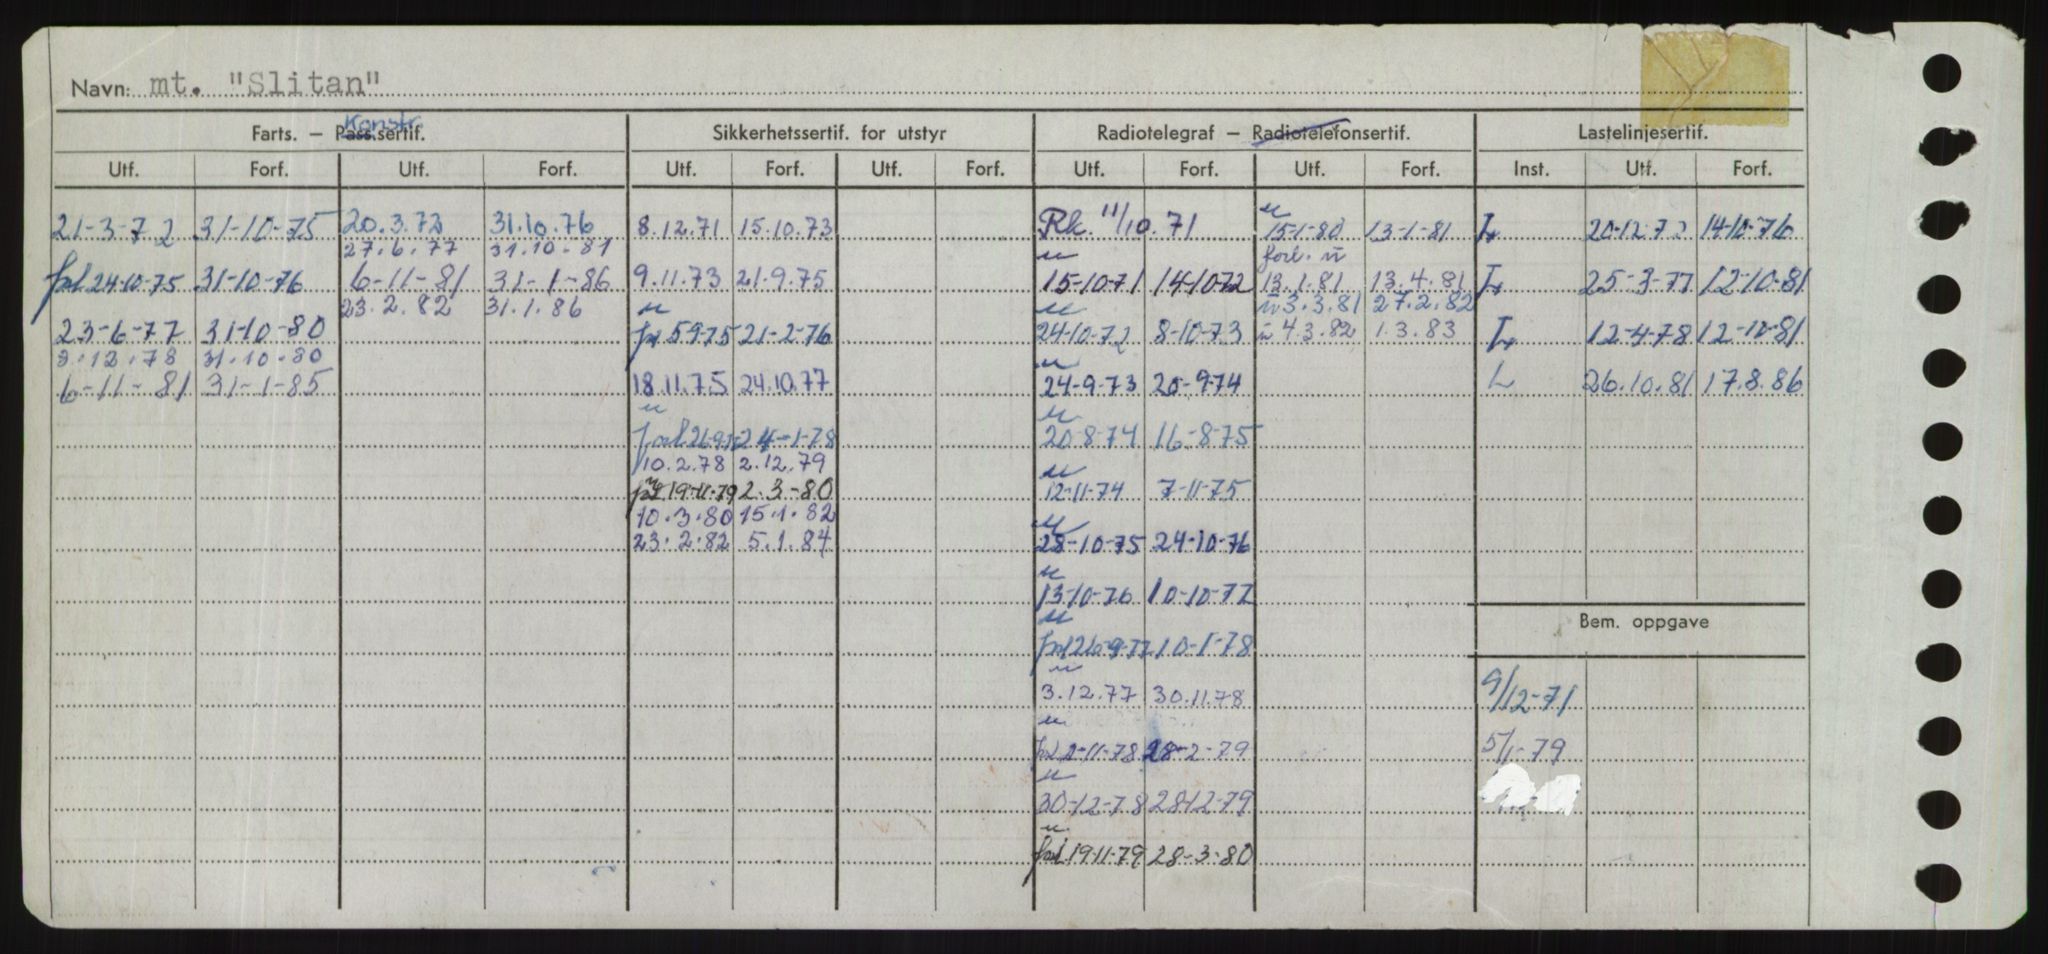 Navn: mt. "Slitan"
Konstr.
Farts. – Pass.sertif. Sikkerhetssertif. for utstyr Radiotelegraf – Radiotelefonsertif. Lastelinjesertif.
Utf. Forf. Utf. Forf. Utf. Forf. Utf. Forf. Utf. Forf. Utf. Forf. Inst. Utf. Forf.
21-3-72 31-10-75 20.3.72 31.10.76 8.12.71 15.10.73 Rk. 11/10.71 15-1-80 13-1-81 L 20-12-72 14-10-76
27.6.77 31.10.81 forl.
24-10-75 31-10-76 6-11-81 31-1-86 9.11.73 21-9.75 15-10-71 14-10-72 13.1.81 13.4.81 L 25-3-77 12-10-81
23.2.82 31.1.86 3.3.81 27.2.82
23-6-77 31-10-80 5-9-75 21-2-76 24-10-72 8-10-73 4.3.82 1.3.83 L 12-4-78 12-10-81
8.12.78 31.10.80
6-11-81 31-1-85 18.11.75 24.10.77 24-9-73 20-9-74 L 26.10.81 17.8.86
24-1-78 20-8-74 16-8-75
10.2.78 2.12.79
19-11-79 2.3-80 12-11-74 7-11-75
10.3.80 15.1.82
23.2.82 5.1.84 28-10-75 24-10-76
13-10-76 10-10-77
Bem. oppgave
26-9-77 10-1-78
3.12.77 30.11.78 9/12-71
2-11-78 28-2-79 5/1-79
30-12-78 28-12-79
19-11-79 28-3-80